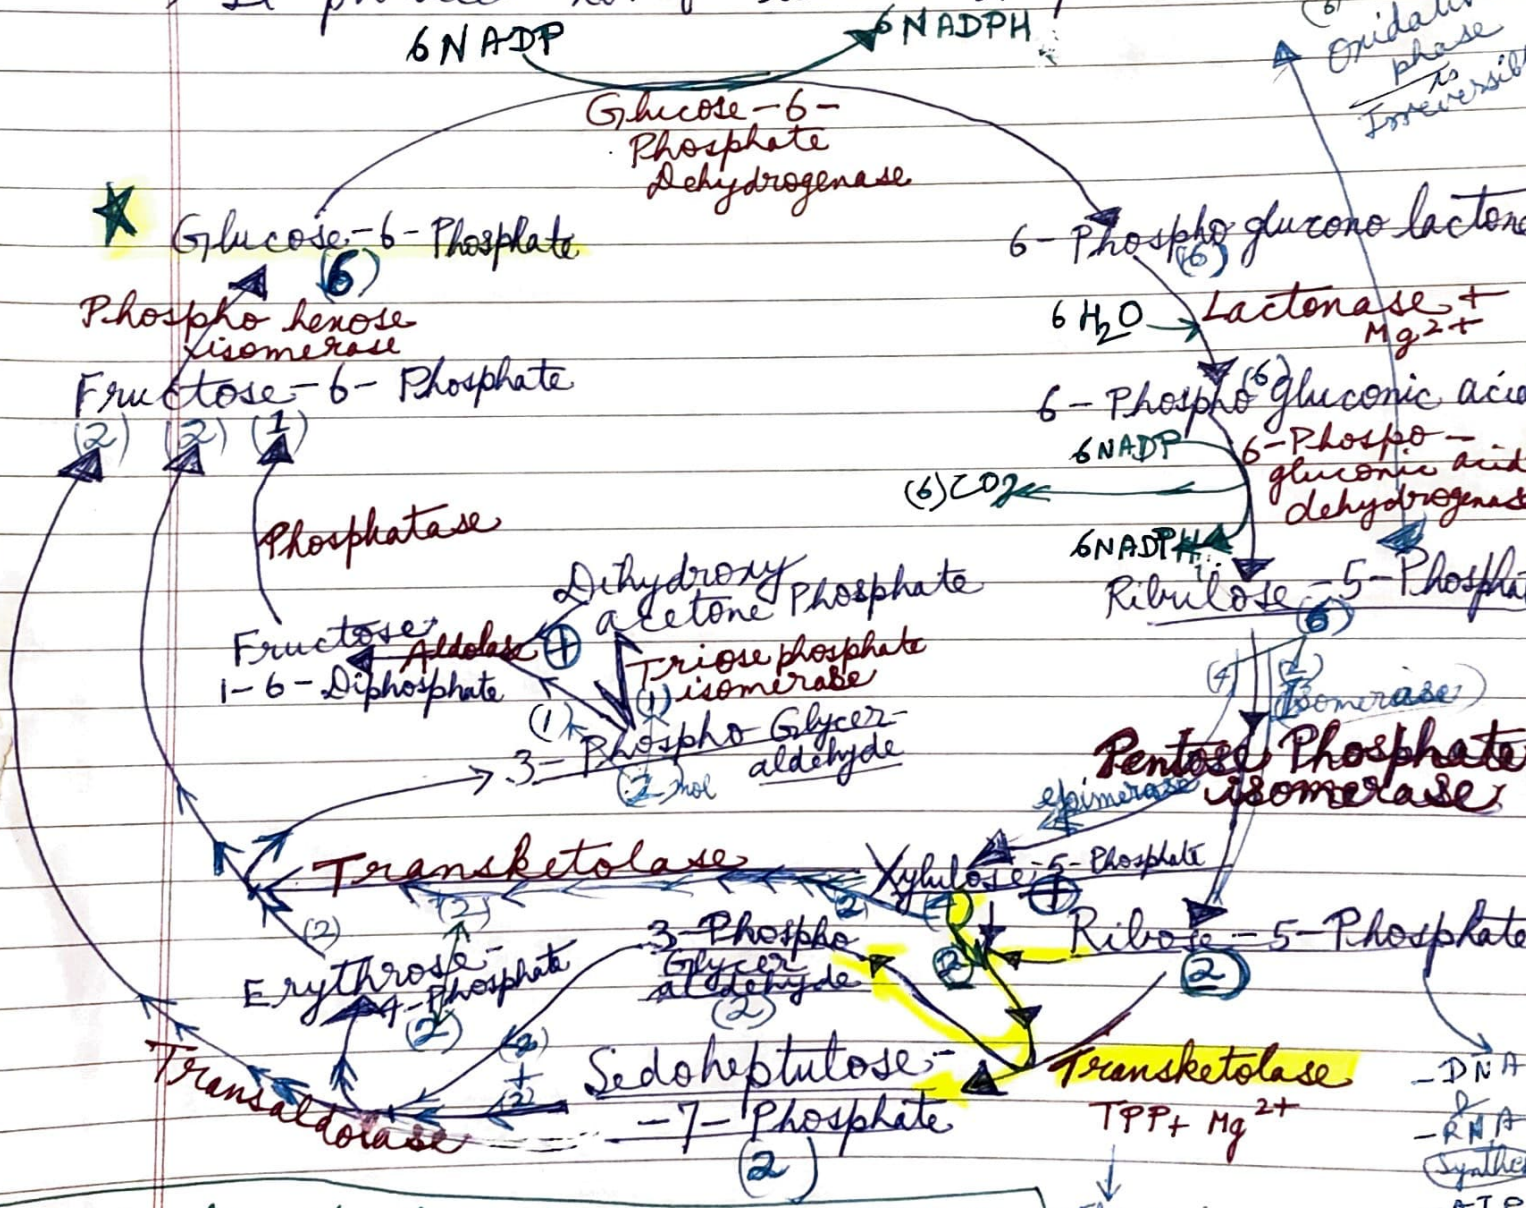 6 NADP
6 NADPH
Oxidati
phase
is
Irreversib
Glucose-6-
Phosphate
Dehydrogenase
Glucose-6-Phosphate
(6)
6-Phospho glucono lactone
(6)
Phospho hexose
isomerase
6 H2O
Lactonase +
Mg2+
Fructose-6-Phosphate
(2) (2) (1)
6-Phospho gluconic acid
(6)
6NADP
6-Phospo-
gluconic acid
dehydrogenase
(6)CO2
6NADPH
Phosphatase
Dihydroxy
acetone Phosphate
Ribulose-5-Phospha
(6)
Fructose
1-6-Diphosphate
Aldolase
+
Triose phosphate
isomerase
(1)
(1)
3-Phospho Glycer-
aldehyde
(2 mol
(4)
(2)
Isomerase)
Pentose Phosphate
isomerase
epimerase
Transketolase
Xylulose-5-Phosphate
+
(2)
(2)
2
(2)
Ribose-5-Phosphate
(2)
Erythrose-
4-Phosphate
(2)
3-Phospho
Glycer
aldehyde
(2)
(2)
+
(2)
Sedoheptulose-
-7-Phosphate
(2)
Transketolase
TPP+ Mg2+
Transaldolase
-DNA
&
-RNA
Synthe